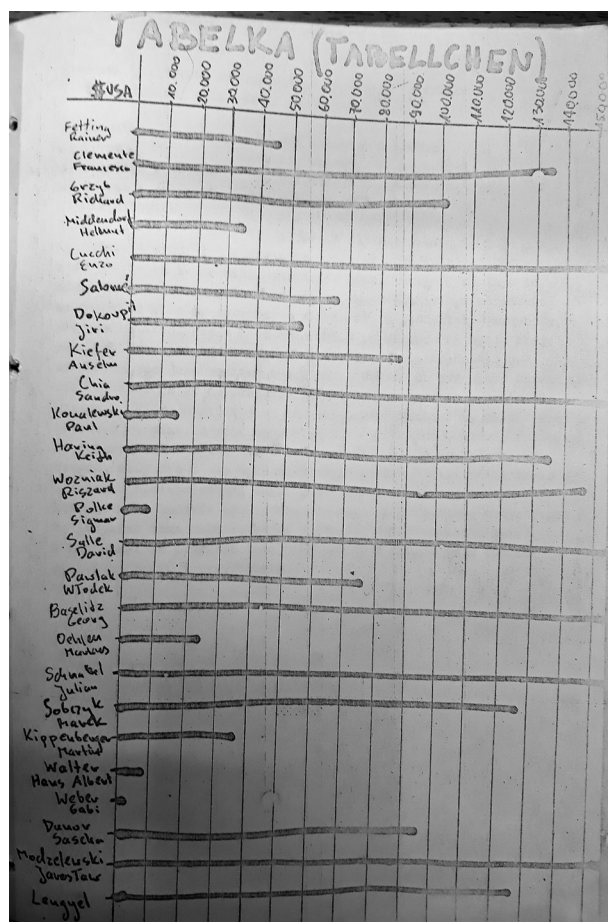 TABELKA (TABELLCHEN)
$USA
10.000 20.000 30.000 40.000 50.000 60.000 70.000 80.000 90.000 100.000 110.000 120.000 130.000 140.000 150.000
Fetting
Rainer
Clemente
Francesco
Grzyb
Richard
Middendorf
Helmut
Cucchi
Enzo
Salomé
Dokoupil
Jiri
Kiefer
Anselm
Chia
Sandro
Kowalewski
Paul
Haring
Keith
Wozniak
Riszard
Polke
Sigmar
Sylle
David
Pawlak
Włodek
Baselidz
Georg
Oehlen
Markus
Schnabel
Julian
Sobczyk
Marek
Kippenberger
Martin
Walter
Hans Albert
Weber
Gabi
Dunov
Sascha
Modzelewski
Jarosław
Lengyel